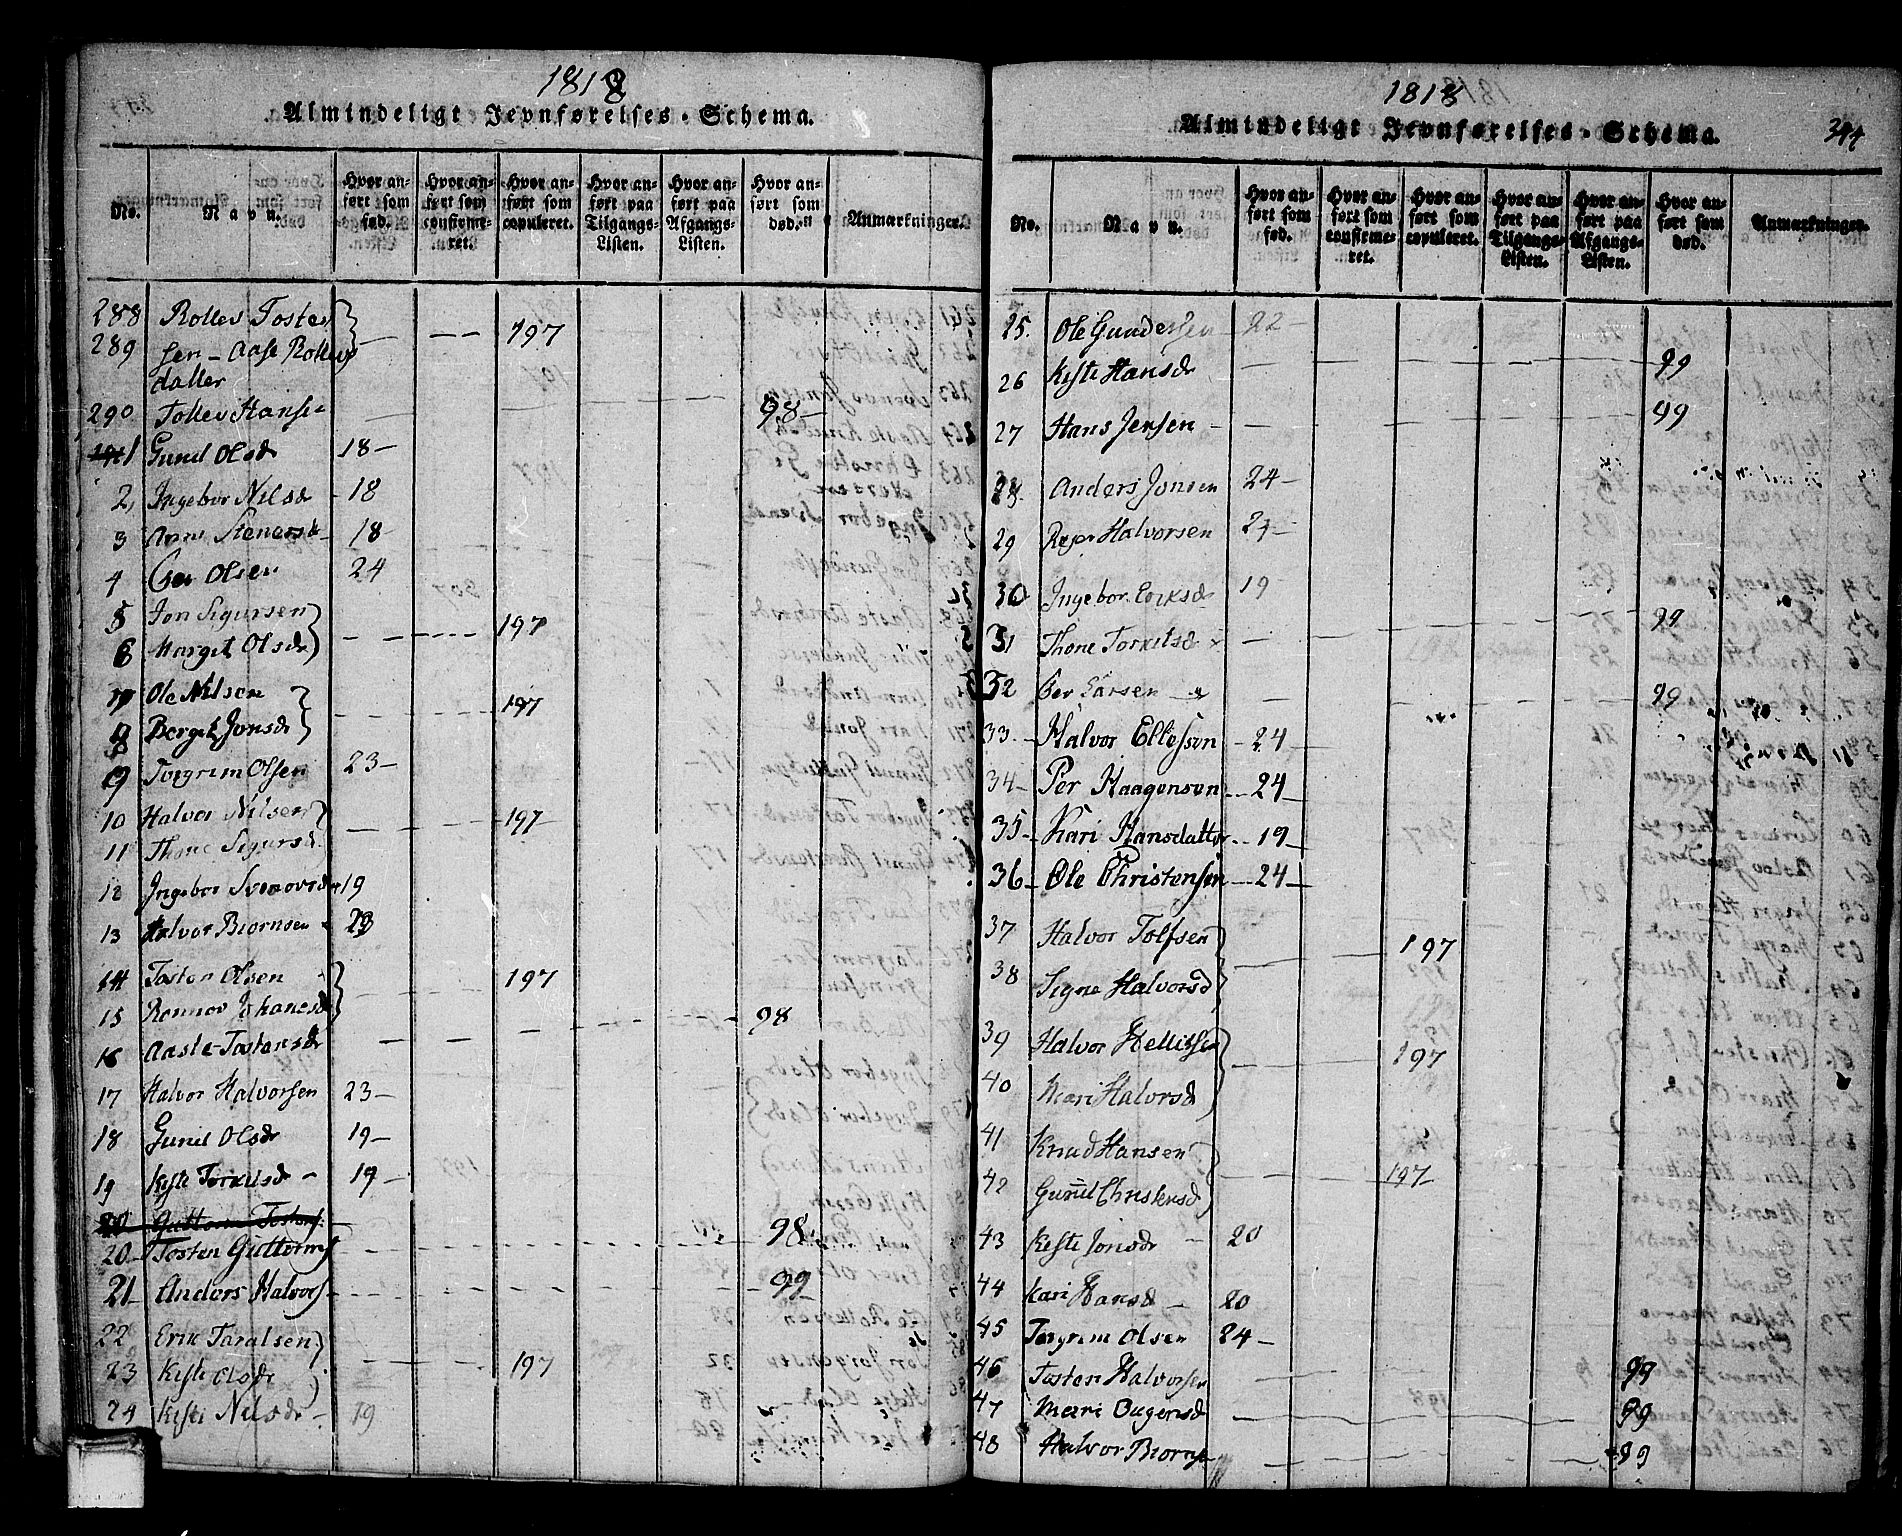 1818
Almindeligt Jevnførelses-Schema.
No.
Navn.
Hvor anført som fød.
Hvor anført som confirmeret.
Hvor anført som copuleret.
Hvor anført paa Tilgangs-Listen.
Hvor anført paa Afgangs-Listen.
Hvor anført som død.
Anmærkninger.
288 Rollev Tosten
289 sen - Aase Rollevs — — 197
datter
290 Tollev Hanse — 98 —
1 Gunil Olsdr 18 —
2, Ingebor Nilsdr - 18
3 Anne Stenersd - 18
4 Per Olsen 24
5 Jon Sigursen
6 Margit Olsdr — 197
7 Ole Nilsen
8 Bergit Jonsdr — 197
9 Torgrim Olsen 23 —
10 Halvor Nilsen — 197
11 Thone Sigursd.
12 Ingebor Svenovsdr 19
13 Halvor Biornsen - 23
14 Tosten Olsen — 197
15 Ronnov Johanesd
16 Aaste Tostensdr — 98
17 Halvor Halvorsen 23 —
18 Gunil Olsdr 19 —
19 Kisti Torkelsd - 19 —
20 Guttorm Tostens.
20 Tosten Guttorms — 98
21 Anders Halvors — 99
22 Erik Taralsen
23 Kisti Olsdr — 197
24 Kisti Nilsdr - 19
1818
344
Almindeligt Jevnførelses-Schema.
No.
Navn.
Hvor anført som fød.
Hvor anført som confirmeret.
Hvor anført som copuleret.
Hvor anført paa Tilgangs-Listen.
Hvor anført paa Afgangs-Listen.
Hvor anført som død.
Anmærkninger.
25. Ole Gundersen 22 —
26 Kisti Hansdr — 99
27 Hans Jensen — 99
28. Anders Jonsen 24 —
29 Halvorsen 24 —
30 Ingebor Eriksdr 19
31 Thone Torkilsd — 99
32 Per Larsen — 99
33. Halvor Ellefsen - 24
34 - Per Haagensen - 24 —
35 - Kari Hansdatter - 19 —
36 - Ole Christensen — 24 —
37 Halvor Tolfsen
38 Signe Halvorsd — 197
39 Halvor Hellitsen
40 Mari Halvorsd — 197
41 Knud Hansen
42 Gunil Christensd — 197
43 Kisti Jonsdr - 20
44 Kari Hansd - 20
45 Torgrim Olsen 24 —
46 Tosten Halvorsen 99
47 Mari Ougensd — 99
48 Halvor Biornse — 99